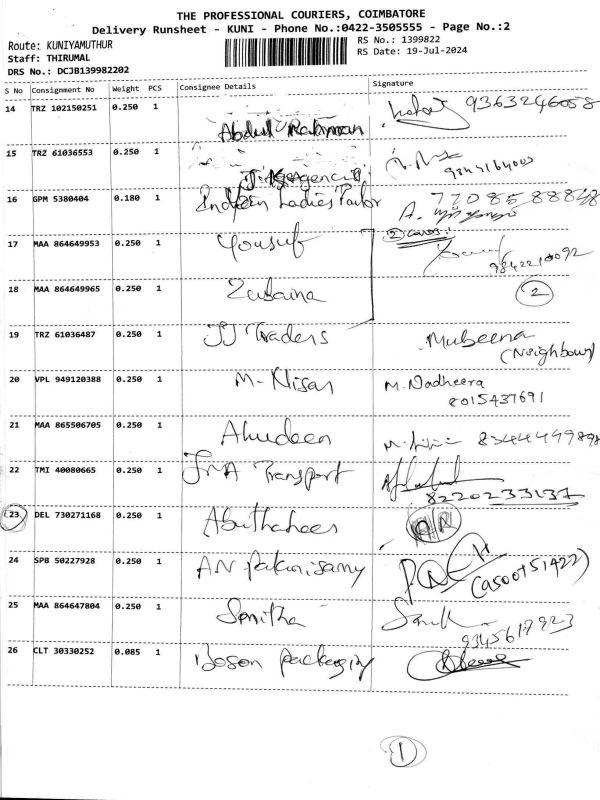 THE PROFESSIONAL COURIERS, COIMBATORE
Delivery Runsheet - KUNI - Phone No.:0422-3505555 - Page No.:2
Route: KUNIYAMUTHUR
RS No.: 1399822
Staff: THIRUMAL
RS Date: 19-Jul-2024
DRS No.: DCJB139982202
S No Consignment No Weight PCS Consignee Details Signature
14 TRZ 102150251 0.250 1 9363246058
Abdul Rahman
15 TRZ 61036553 0.250 1
16 GPM 5380404 0.180 1 Indian Ladies Tailor A.
17 MAA 864649953 0.250 1 Yousuf 9842210092
18 MAA 864649965 0.250 1 Zubaina 2
19 TRZ 61036487 0.250 1 JJ Traders Mubeena
(Neighbour)
20 VPL 949120388 0.250 1 M. Nisar M. Nadheera
8015437691
21 MAA 865506705 0.250 1 M.
22 TMI 40080665 0.250 1 Transport
8220233137
23 DEL 730271168 0.250 1
24 SPB 50227928 0.250 1 AN
25 MAA 864647804 0.250 1
9345617923
26 CLT 30330252 0.085 1
1